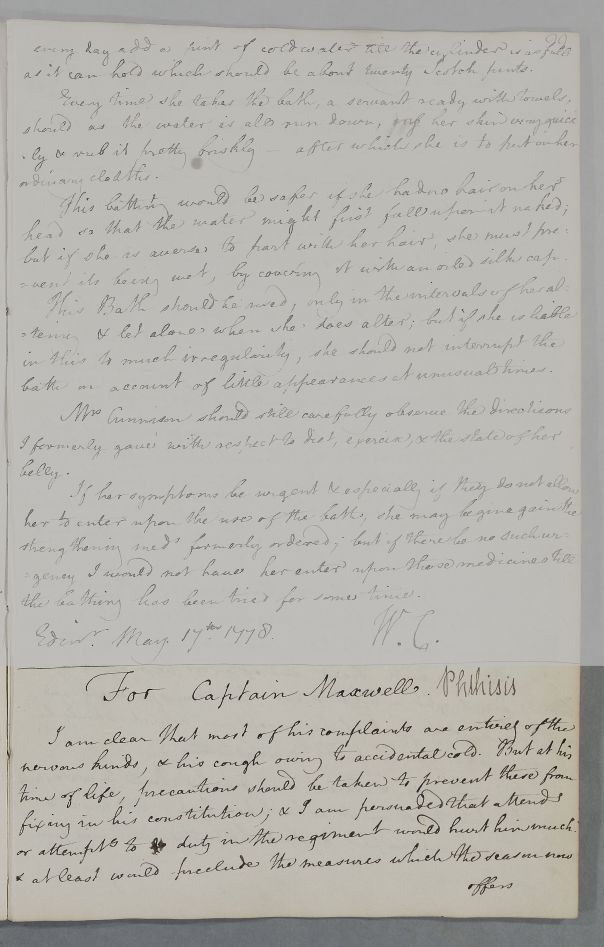 99
every day add a pint of cold water till the cylinder is as full
as it can hold which should be about twenty Scotch pints.
Every time she takes the bath, a servant ready with towels,
should as the water is all run down, rub her skin very quick
-ly & rub it pretty briskly — after which she is to put on her
ordinary cloaths.
This bathing would be safer if she had no hair on her
head so that the water might first fall upon it naked;
but if she is averse to part with her hair, she must pre-
-vent its being wet, by covering it with an oiled silk cap.
This Bath should be used, only in the intervals of her al-
-tering & let alone when she does alter; but if she is liable
in this to much irregularity, she should not interrupt the
bath on account of little appearances at unusual times.
Mrs should still carefully observe the directions
I formerly gave with respect to diet, exercise, & the state of her
belly.
If her symptoms be urgent & especially if they do not allow
her to enter upon the use of the bath, she may begin again the
strengthening meds formerly ordered; but if there be no such ur-
-gency I would not have her enter upon these medicines till
the bathing has been tried for some time.
Edinr. May 17th 1778. W. C.
For Captain Maxwell. Phthisis
I am clear that most of his complaints are entirely of the
nervous kind, & his cough owing to accidental cold. But at his
time of life, precautions should be taken to prevent these from
fixing in his constitution; & I am persuaded that attendg
or attemptg to duty in the regiment would hurt him much
& at least would preclude the measures which the season now
offers